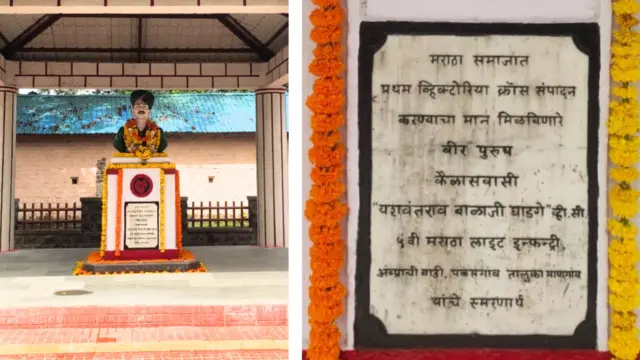 मराठा समाजात
प्रथम व्हिक्टोरिया क्रॉस संपादन
करण्याचा मान मिळविणारे
बीर पुरुष
कैलासवासी
"यशवंतराव बाळाजी घाडगे" व्ही.सी.
५वी मराठा लाइट इन्फन्ट्री,
आंब्राची वाडी, पळसगांव तालुका माणगांव
यांचे स्मरणार्थ